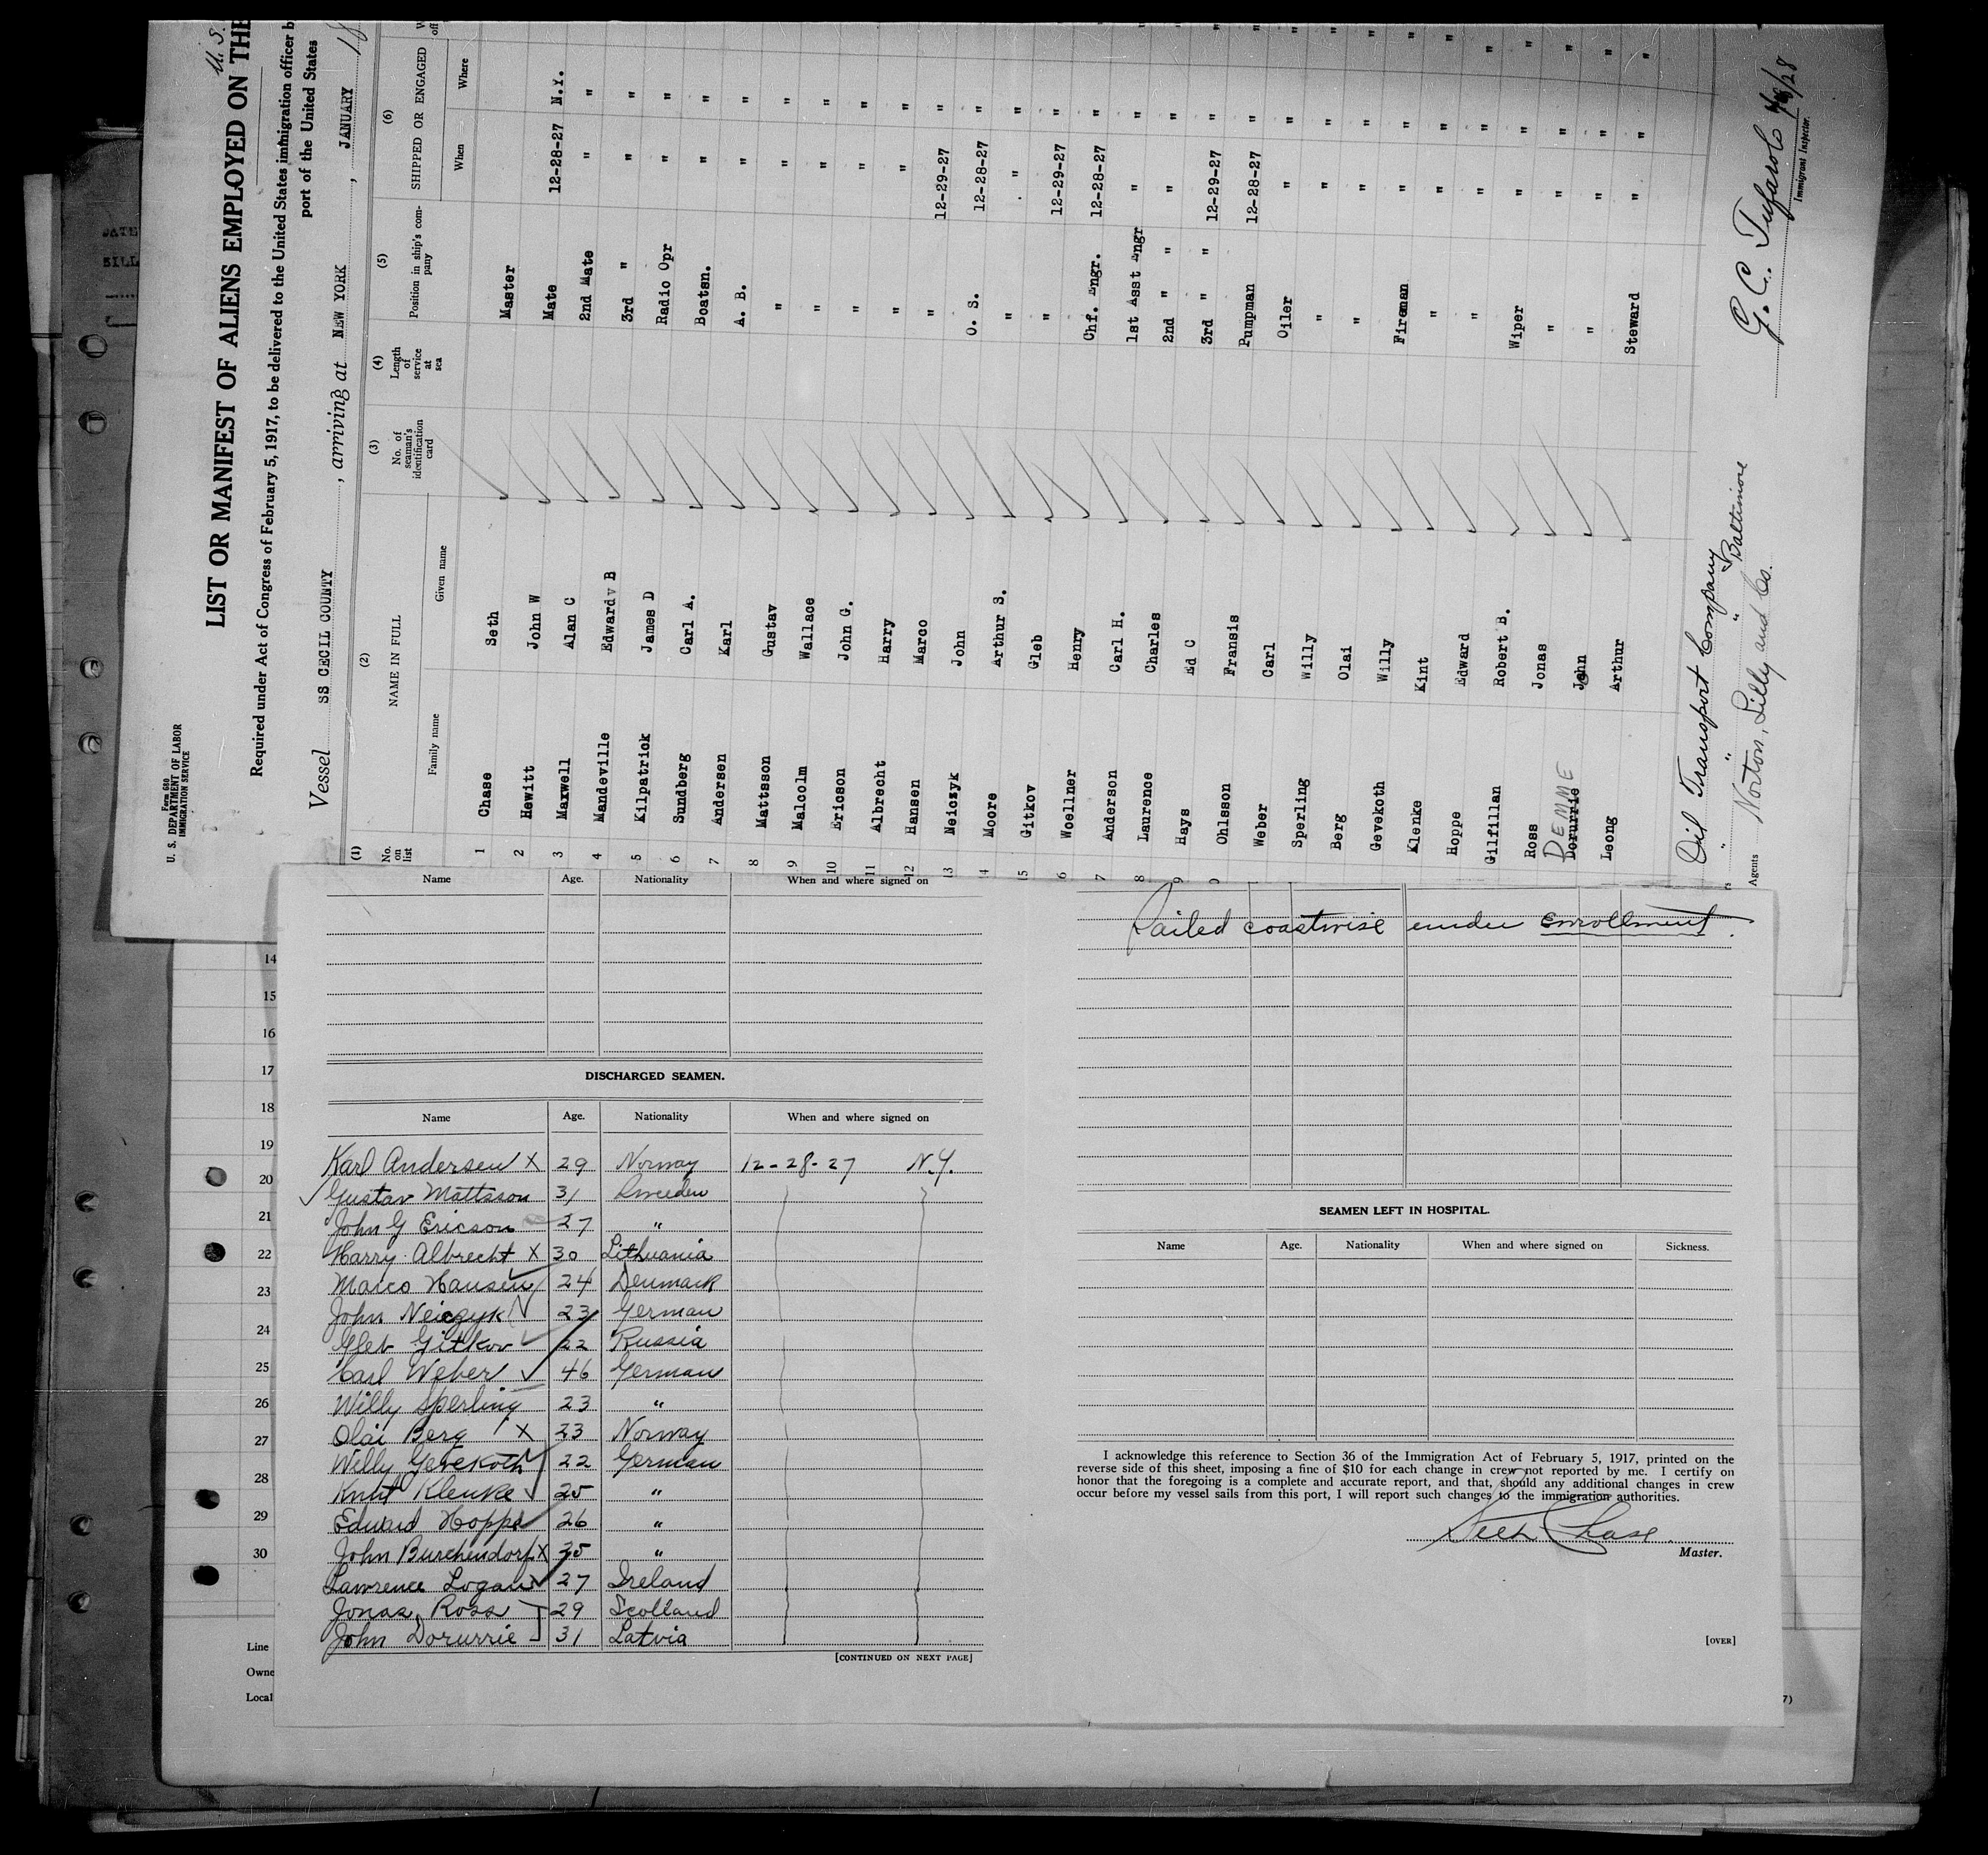 Form 680
U. S. DEPARTMENT OF LABOR
IMMIGRATION SERVICE
U. S.
LIST OR MANIFEST OF ALIENS EMPLOYED ON THE
Required under Act of Congress of February 5, 1917, to be delivered to the United States immigration officer b
port of the United States
Vessel SS CECIL COUNTY, arriving at NEW YORK, JANUARY 18
(1) (2) (3) (4) (5) (6)
No. on list NAME IN FULL No. of seaman's identification card Length of service at sea Position in ship's company SHIPPED OR ENGAGED
Family name Given name When Where
1 Chase Seth Master
2 Hewitt John W Mate 12-28-27 N.Y.
3 Maxwell Alan C 2nd Mate " "
4 Mandeville Edward B 3rd " " "
5 Kilpatrick James D Radio Opr " "
6 Sundberg Carl A. Boatsn. " "
7 Andersen Karl A. B. " "
8 Mattsson Gustav " " "
9 Malcolm Wallace " " "
10 Ericson John G. " " "
11 Albrecht Harry " " "
12 Hansen Marco " 12-29-27 "
13 Neiczyk John O. S. 12-28-27 "
14 Moore Arthur S. " " "
15 Gitkov Gleb " 12-29-27 "
6 Woellner Henry Chf. Engr. 12-28-27 "
7 Anderson Carl H. 1st Asst Engr " "
8 Laurence Charles 2nd " " " "
9 Hays Ed C 3rd " " 12-29-27 "
0 Ohlsson Fransis Pumpman 12-28-27 "
Weber Carl Oiler " "
Sperling Willy " " "
Berg Olai " " "
Gevekoth Willy Fireman " "
Klenke Kint " " "
Hoppe Edward " " "
Gilfillan Robert B. Wiper " "
Ross Jonas " " "
DEMME Dorurrie John " " "
Leong Arthur Steward " "
Oil Transport Company
" " " Baltimore
Agents Norton, Lilly and Co.
G. C. Tufarolo /28
Immigrant Inspector.
Name Age. Nationality When and where signed on
DISCHARGED SEAMEN.
Name Age. Nationality When and where signed on
Karl Andersen X 29 Norway 12-28-27 N.Y.
Gustav Mattsson 31 Sweden
John G Ericson 27 "
Harry Albrecht X 30 Lithuania
Marco Hansen 24 Denmark
John Neiczyk 23 German
Gleb Gitkov 22 Russia
Carl Weber 46 German
Willy Sperling 23 "
Olai Berg X 23 Norway
Willy Gevekoth 22 German
Knut Klenke 25 "
Edward Hoppe 26 "
John Burchendorf X 35 "
Lawrence Logan 27 Ireland
Jonas Ross 29 Scotland
John Dorurrie 31 Latvia
[CONTINUED ON NEXT PAGE]
Sailed coastwise under enrollment.
SEAMEN LEFT IN HOSPITAL.
Name Age. Nationality When and where signed on Sickness.
I acknowledge this reference to Section 36 of the Immigration Act of February 5, 1917, printed on the
reverse side of this sheet, imposing a fine of $10 for each change in crew not reported by me. I certify on
honor that the foregoing is a complete and accurate report, and that, should any additional changes in crew
occur before my vessel sails from this port, I will report such changes to the immigration authorities.
Seth Chase
Master.
[OVER]
14
15
16
17
18
19
20
21
22
23
24
25
26
27
28
29
30
Line
Owne
Local
7)